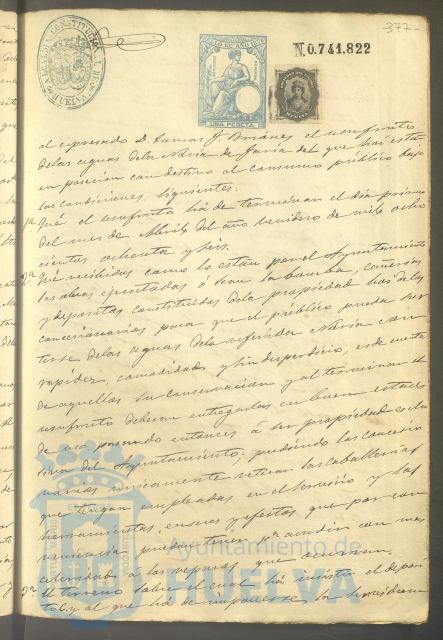 377-
ALCALDIA CONSTITUCIONAL DE HUELVA
N.0.741.822
UNA PESETA
al expresado D. Ramon J. Jimenez el usufruto
delas aguas dela Noria de Faria del que hoy está
en posecion con destino al consumo público bajo
las condiciones siguientes:
1ª Que el usufruto há de terminar el dia primero
del mes de Abril del año venidero de mil ocho
cientos ochenta y seis.
2ª Que recibidas como lo están por el Ayuntamiento
las obras ejecutadas ó sean la bomba, cañerias
y depositos construidos dela propiedad hoy delos
concesionarios para que el público pueda sur
tirse delas aguas dela referida Noria con
rapidez, comodidad y sin desperdicio, es de cuenta
de aquellos su conservacion y al terminar el
usufruto deberan entregarlas en buen estado
de uso pasando entonces á ser propiedad esclu
siva del Ayuntamiento; pudiendo los concesio
narios unicamente retirar las caballerias
que tengan empleadas en el servicio y las
herramientas, enseres y efectos que por con
veniencia puedan tener pª acudir con mas
celeridad á los reparos que ocurran.
3ª El terreno sobre el cual há insisten el deposi
to C. y al que há de imponerse la servidum
Ayuntamiento de
HUELVA